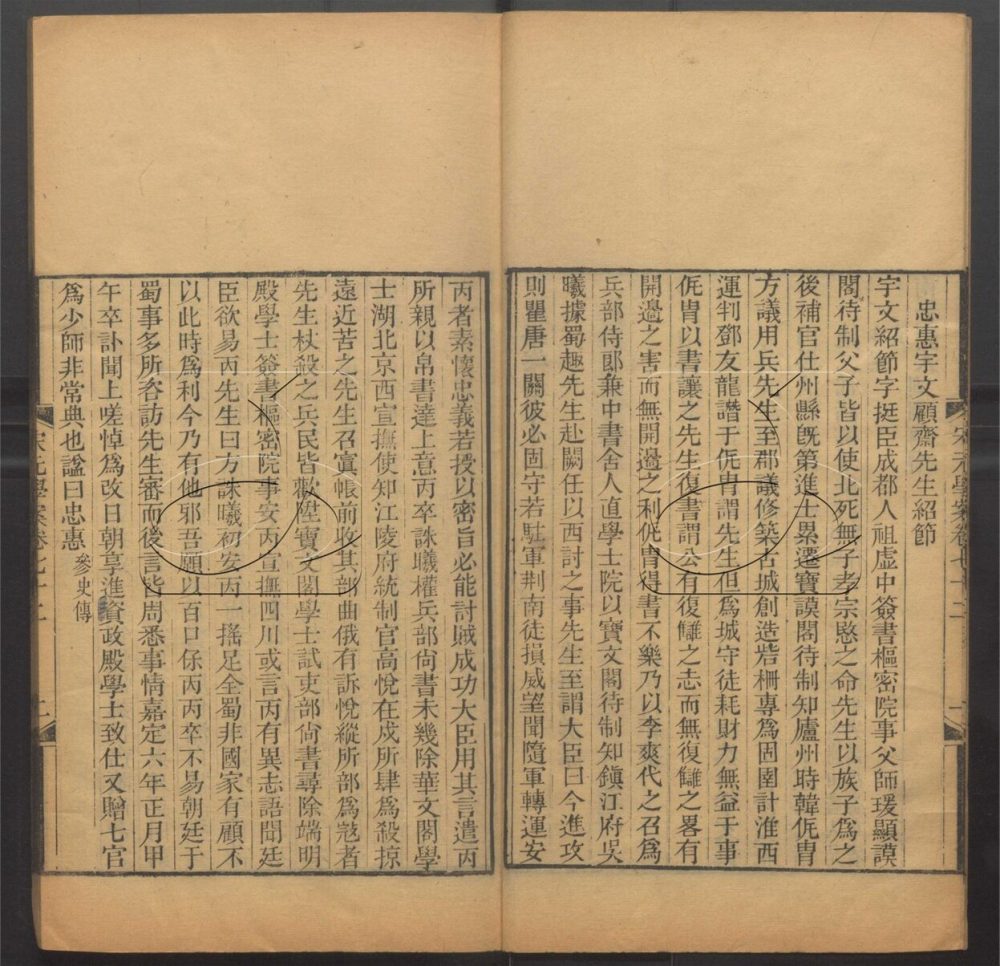 忠惠宇文顧齋先生紹節
宇文紹節字挺臣成都人祖虛中簽書樞密院事父師瑗顯謨
閣待制父子皆以使北死無子孝宗愍之命先生以族子爲之
後補官仕州縣既第進士累遷寶謨閣待制知廬州時韓侂冑
方議用兵先生至郡議修築古城創造砦柵專爲固圉計淮西
運判鄧友龍譖于侂冑謂先生但爲城守徒耗財力無益于事
侂冑以書讓之先生復書謂公有復讎之志而無復讎之畧有
開邊之害而無開邊之利侂冑得書不樂乃以李爽代之召爲
兵部侍郎兼中書舍人直學士院以寶文閣待制知鎭江府吳
曦據蜀趣先生赴闕任以西討之事先生至謂大臣曰今進攻
則瞿唐一關彼必固守若駐軍荆南徒損威望聞隨軍轉運安
宋元學案卷七十二
丙者素懷忠義若授以密旨必能討賊成功大臣用其言遣丙
所親以帛書達上意丙卒誅曦權兵部尙書未幾除華文閣學
士湖北京西宣撫使知江陵府統制官高悅在戍所肆爲殺掠
遠近苦之先生召寘帳前收其部曲俄有訴悅縱所部爲寇者
先生杖殺之兵民皆歡陞寶文閣學士試吏部尙書尋除端明
殿學士簽書樞密院事安丙宣撫四川或言丙有異志語聞廷
臣欲易丙先生曰方誅曦初安丙一搖足全蜀非國家有顧不
以此時爲利今乃有他邪吾願以百口保丙丙卒不易朝廷于
蜀事多所咨訪先生審而後言皆周悉事情嘉定六年正月甲
午卒訃聞上嗟悼爲改日朝享進資政殿學士致仕又贈七官
爲少師非常典也諡曰忠惠 參史傳
宋元學案卷七十二